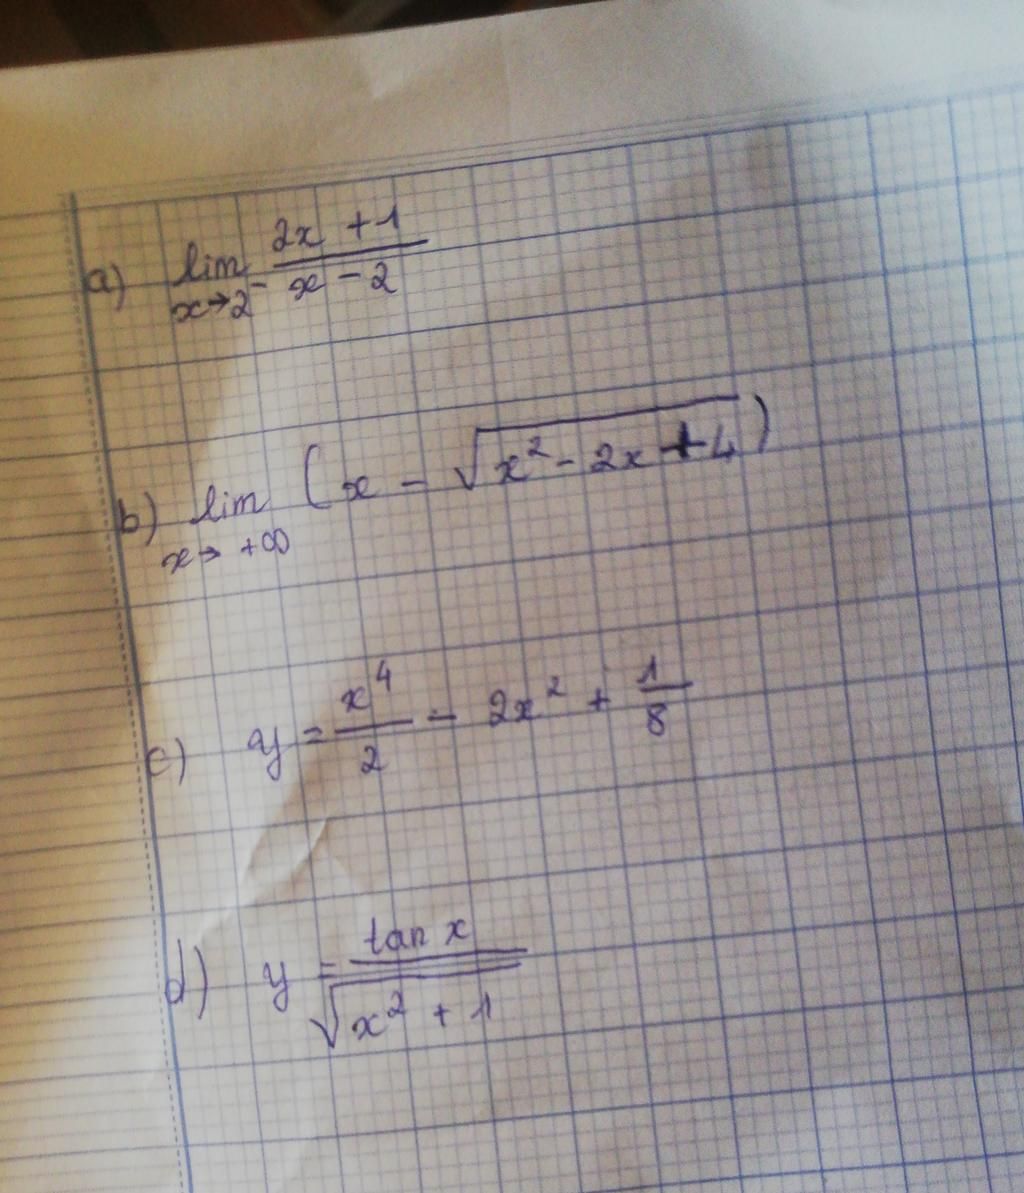 a) lim x→2⁻ (2x + 1)/(x - 2)
b) lim x→ +∞ (x - √(x² - 2x + 4))
c) y = x⁴/2 - 2x² + 1/8
d) y = tan x/√(x² + 1)